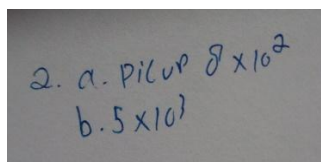 2. a. Picup 8 x 10²
b. 5 x 10³